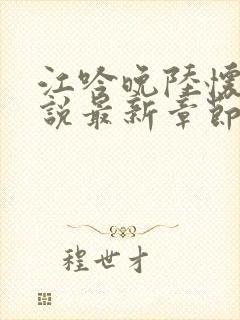 江吟晚陸懷
說最新章節
程世才